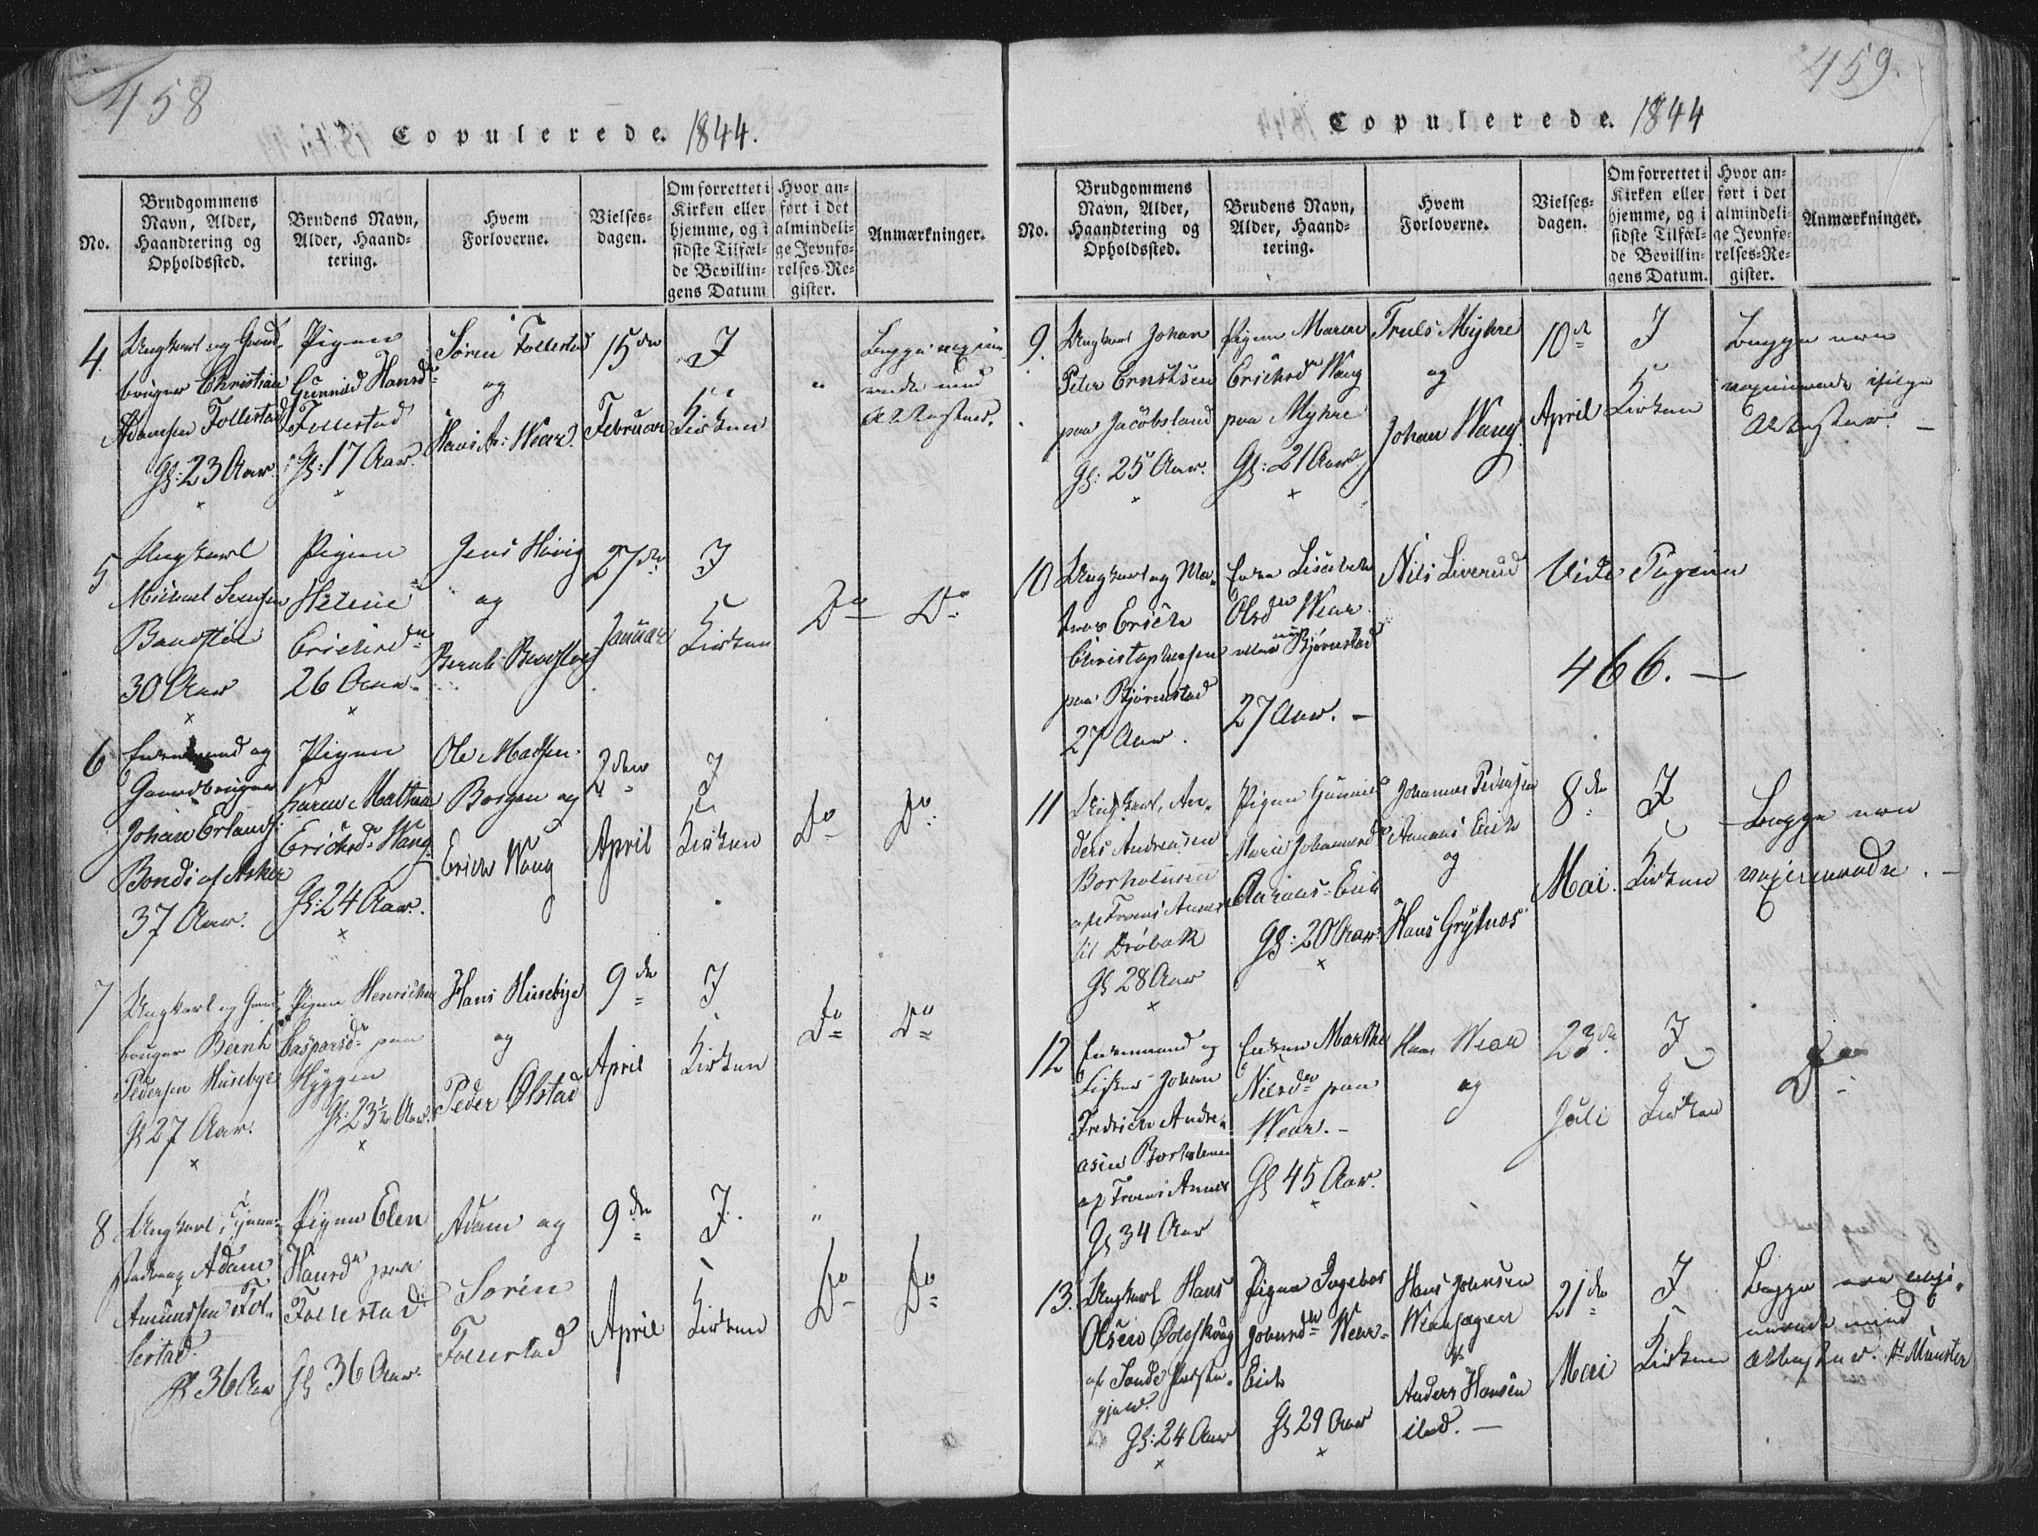 458
Copulerede. 1844.
No.
Brudgommens
Navn, Alder,
Haandtering og
Opholdssted.
Brudens Navn,
Alder, Haand-
tering.
Hvem
Forloverne.
Vielses-
dagen.
Om forrettet i
Kirken eller
hjemme, og i
sidste Tilfæl-
de Bevillin-
gens Datum
Hvor an-
ført i det
almindeli-
ge Jevnfø-
relses-Re-
gister.
Anmærkninger.
4
Ungkarl og Gaard-
bruger Christian
Adamsen Follestad
Gl: 23 Aar.
Pigen
Gunnild Hansdr
Follestad
Gl: 17 Aar.
Søren Follestad
og
Hans A: Wear.
15de
Februar
I
Kirken
"
Begge
med
Attester.
5
Ungkarl
Michael
30 Aar
Pigen
Helene
Erichsdr
26 Aar.
Jens Høvig
og
Bernt
27de
Januar
I
Kirken
Do
Do
6
Enkemand og
Gaardbruger
Johan Erlands:
Bondi af Asker
37 Aar.
Pigen
Karen Mathea
Erichsdr Wang.
Gl: 24 Aar.
Ole Madsen
Borgen og
Erich Wang
2den
April
I
Kirken
Do
Do
7
Ungkarl og Gaard
bruger Bernh
Pedersen Husebye
Gl 27 Aar.
Pigen Henriche
Caspersdr paa
Hyggen
Gl: 23½ Aar.
Hans Husebye
og
Peder Olstad
9de
April
I
Kirken
Do
Do
8
Ungkarl, Tjene-
Adam
Amundsen Fol-
lestad.
Gl 36 Aar
Pigen Elen
Hansdr paa
Follestad
Gl 36 Aar.
Adam og
Søren
Follestad
9de
April
I
Kirken
"
Do
Do
459.
Copulerede. 1844
No.
Brudgommens
Navn, Alder,
Haandtering og
Opholdssted.
Brudens Navn,
Alder, Haand-
tering.
Hvem
Forloverne.
Vielses-
dagen.
Om forrettet i
Kirken eller
hjemme, og i
sidste Tilfæl-
de Bevillin-
gens Datum.
Hvor an-
ført i det
almindeli-
ge Jevnfø-
relses-Re-
gister.
Anmærkninger.
9.
Ungkarl Johan
Peter Ernstsen
paa Jacobsland
Gl: 25 Aar.
Pigen Maren
Erichsdr Wang
paa Myhre
Gl: 21 Aar
Truls Myhre
og
Johan Wang
10de
April
I
Kirken
Begge ere
vaxinerede ifølge
Attester.
10
Ungkarl og Ma-
tros Erich
Christophersen
paa Bjørnstad
27 Aar.
Enken Lisebeth
Olsdr Wear
eller Bjørnstad
27 Aar.
Nils Liverud
Vide Pagina
466.
11
Ungkarl, An-
ders Andreasen
Borholmen
til Drøbak
Gl 28 Aar
Pigen Gunnild
Marie Johannesdr
Eich
Gl: 20 Aar.
Johannes Pedersen
Eich
og
Hans Grytnes
8de
Mai.
I
Kirken
Begge ere
vaxinerede.
12
Enkemand og
Fisker Johan
Fredrich Andre-
asen Borholmen
Gl 34 Aar
Enken Marthe
Nilsdr paa
Wear.
Gl 45 Aar.
Hans Wear
og
23de
Juli
I
Kirken
Do
13.
Ungkarl Hans
Olsen Odeskoug
af Sande Præste-
gjeld.
Gl: 24 Aar
Pigen Ingebor
Johnsdr Wear-
Eich
Gl 29 Aar
Hans Johnsen
Wearhagen
og
Anders Hansen
21de
Mai
I
Kirken
Begge ere vaxi-
nerede med
Attester.